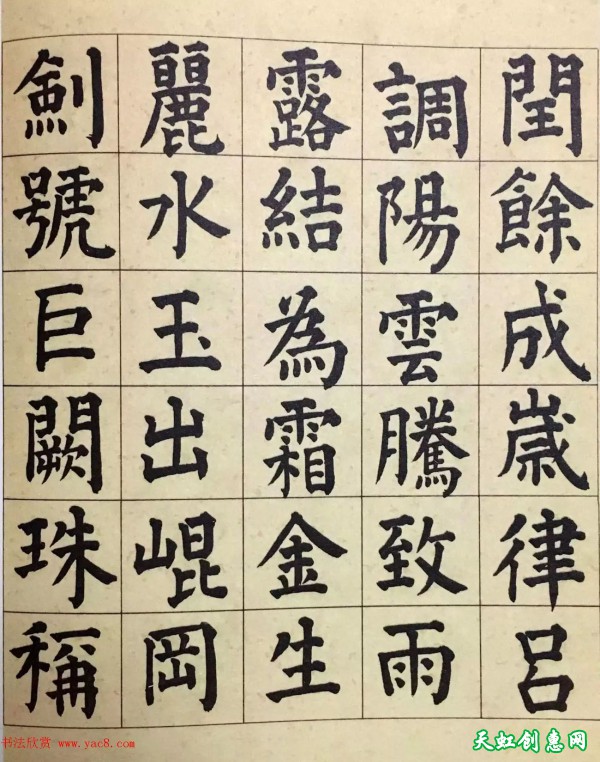 閏餘成歲律呂
調陽雲騰致雨
露結為霜金生
麗水玉出崐岡
劍號巨闕珠稱
书法欣赏 www.yac8.com
天虹创惠网